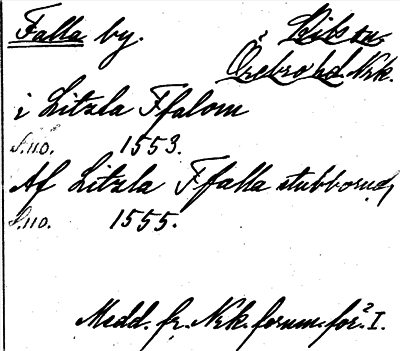 Falla by.
Örebro hd. Nrk.
i Litzla Ffalom
S.no. 1553.
Af Litzla Ffalla stubborud,
S.no. 1555.
Medd. fr. Nrk. fornm. för.² I.